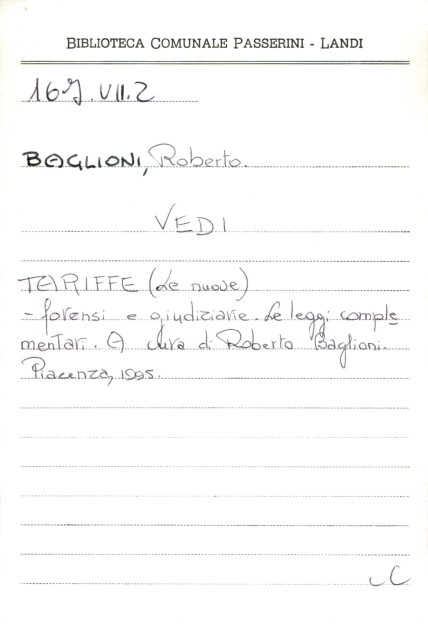 BIBLIOTECA COMUNALE PASSERINI - LANDI
16J.VII.2
BAGLIONI, Roberto.
VEDI
TARIFFE (Le nuove)
- forensi e giudiziarie. Le leggi comple
mentari. A cura di Roberto Baglioni.
Piacenza, 1995.